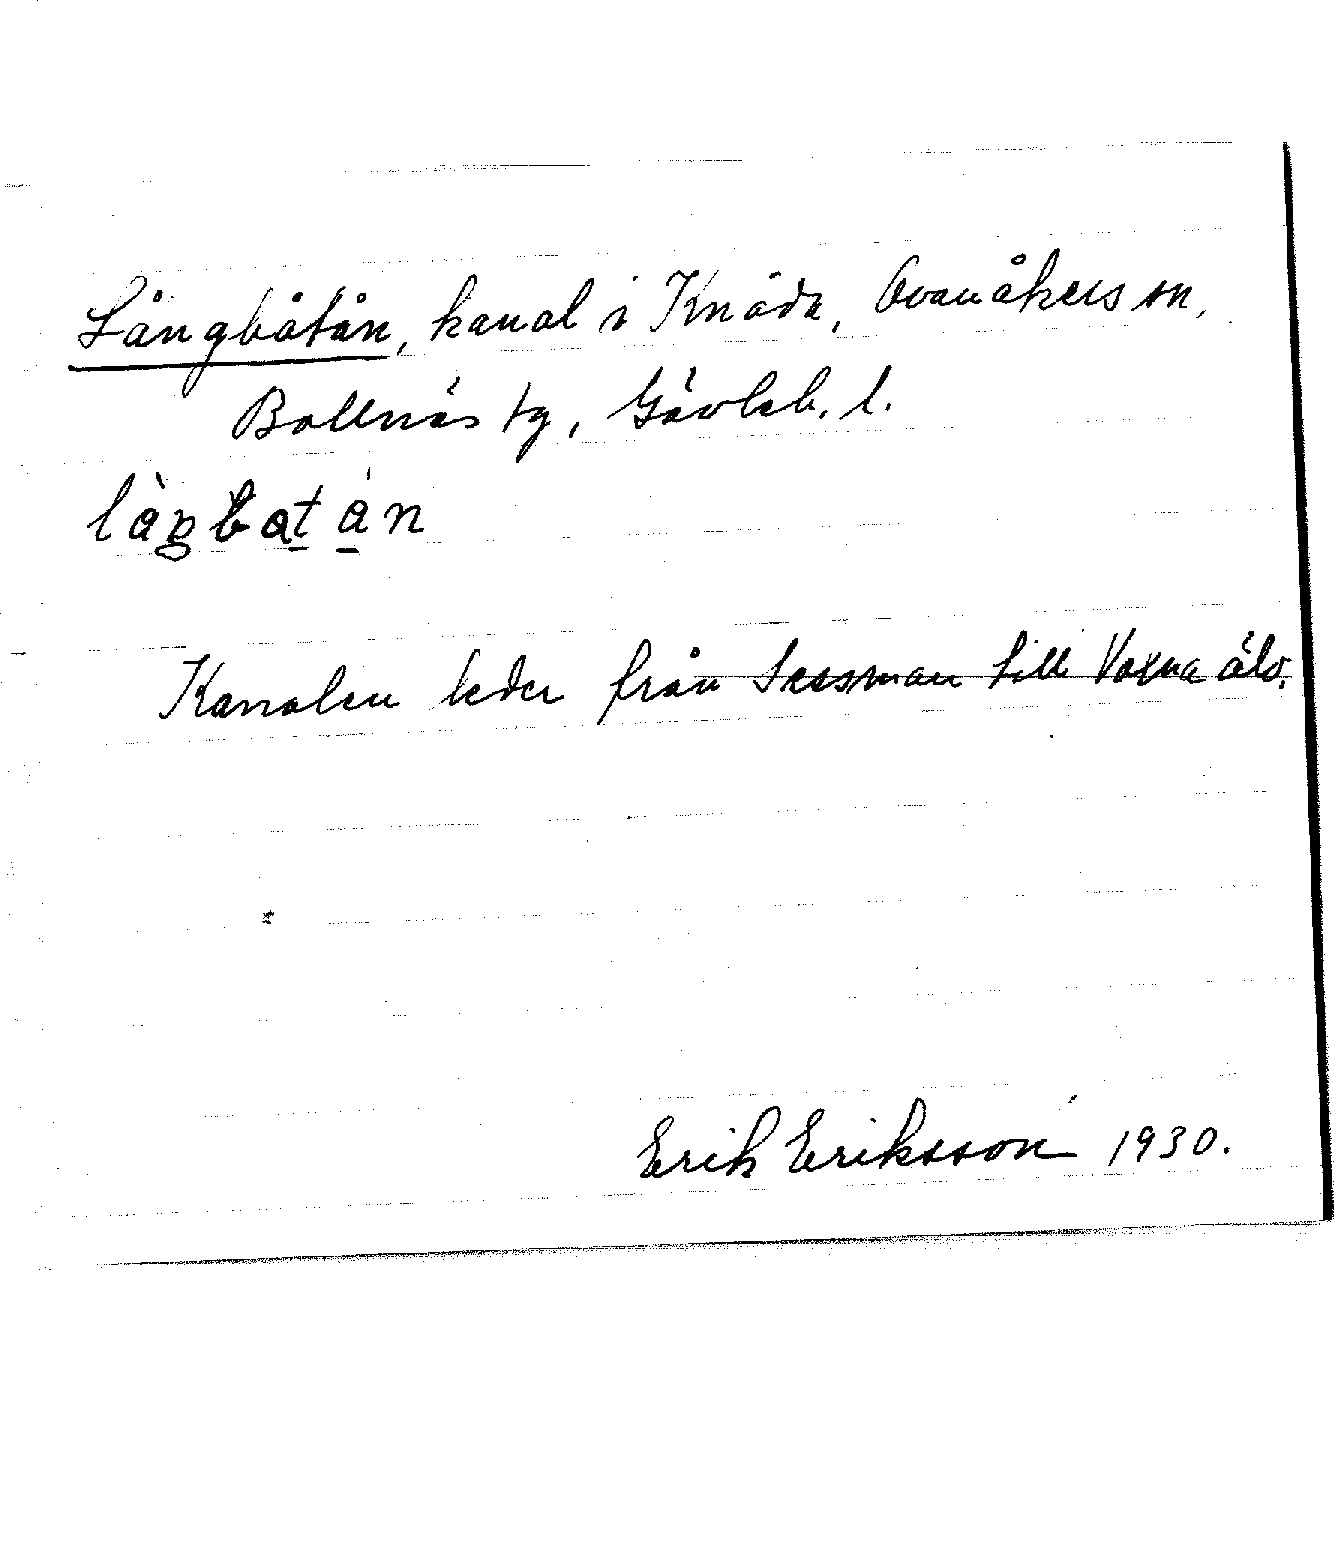 Långbåtån, kanal i Knåda, Ovanåkers sn,
Bollnäs tg, Gävleb. l.
Kanalen leder från Sessman till Voxna älv.
Erik Eriksson 1930.